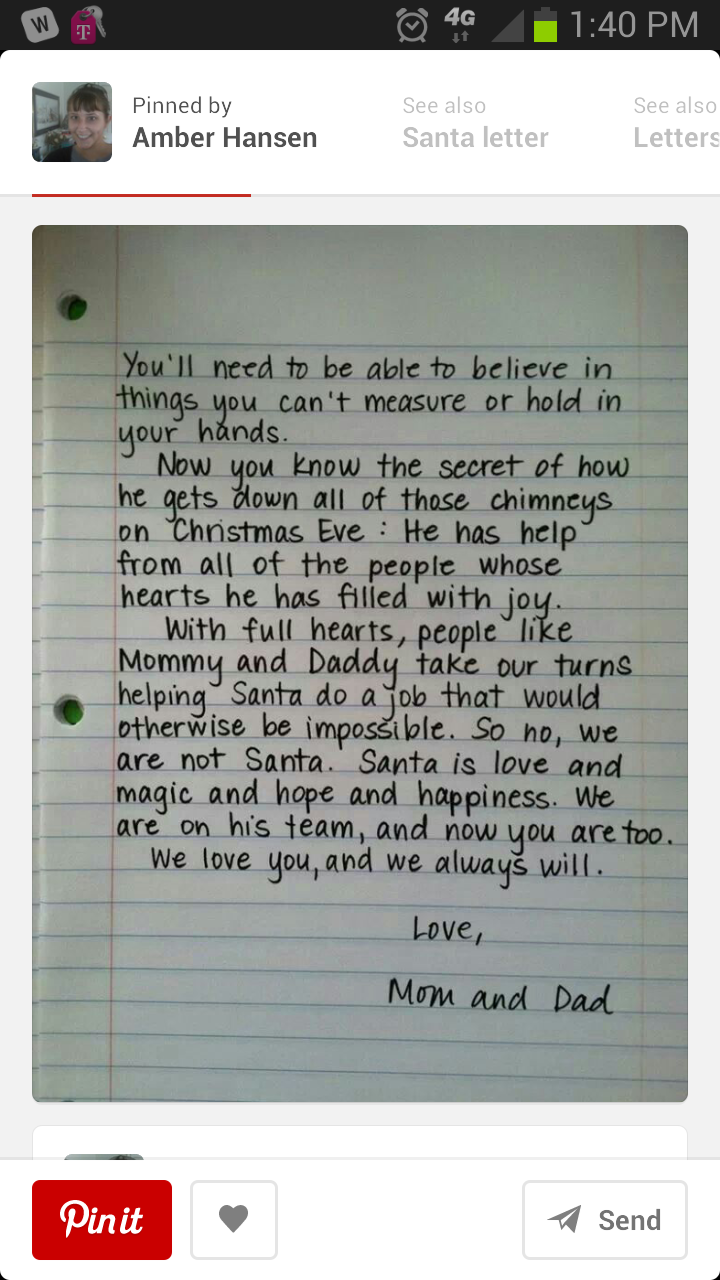 W T 4G 1:40 PM
Pinned by See also See also
Amber Hansen Santa letter Letters
You'll need to be able to believe in
things you can't measure or hold in
your hands.
Now you know the secret of how
he gets down all of those chimneys
on Christmas Eve : He has help
from all of the people whose
hearts he has filled with joy.
With full hearts, people like
Mommy and Daddy take our turns
helping Santa do a job that would
otherwise be impossible. So no, we
are not Santa. Santa is love and
magic and hope and happiness. We
are on his team, and now you are too.
We love you, and we always will.
Love,
Mom and Dad
Pin it Send